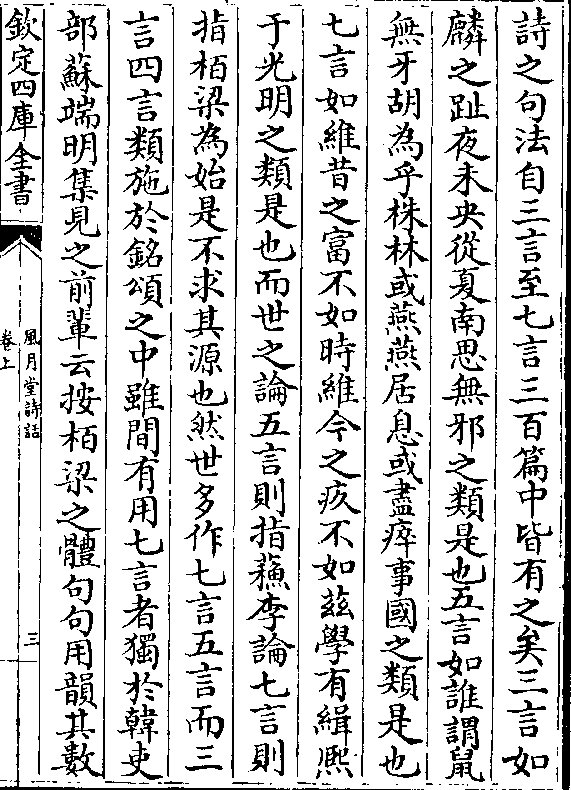 詩之句法自三言至七言三百篇中皆有之矣三言如
麟之趾夜未央從夏南思無邪之類是也五言如誰謂鼠
無牙胡為乎株林或燕燕居息或盡瘁事國之類是也
七言如維昔之富不如時維今之疚不如兹學有緝熙
于光明之類是也而世之論五言則指蘓李論七言則
指栢梁為始是不求其源也然世多作七言五言而三
言四言類施於銘頌之中雖間有用七言者獨於韓吏
部蘇端明集見之前輩云按栢梁之體句句用韻其數
欽定四庫全書
風月堂詩話
卷上
三